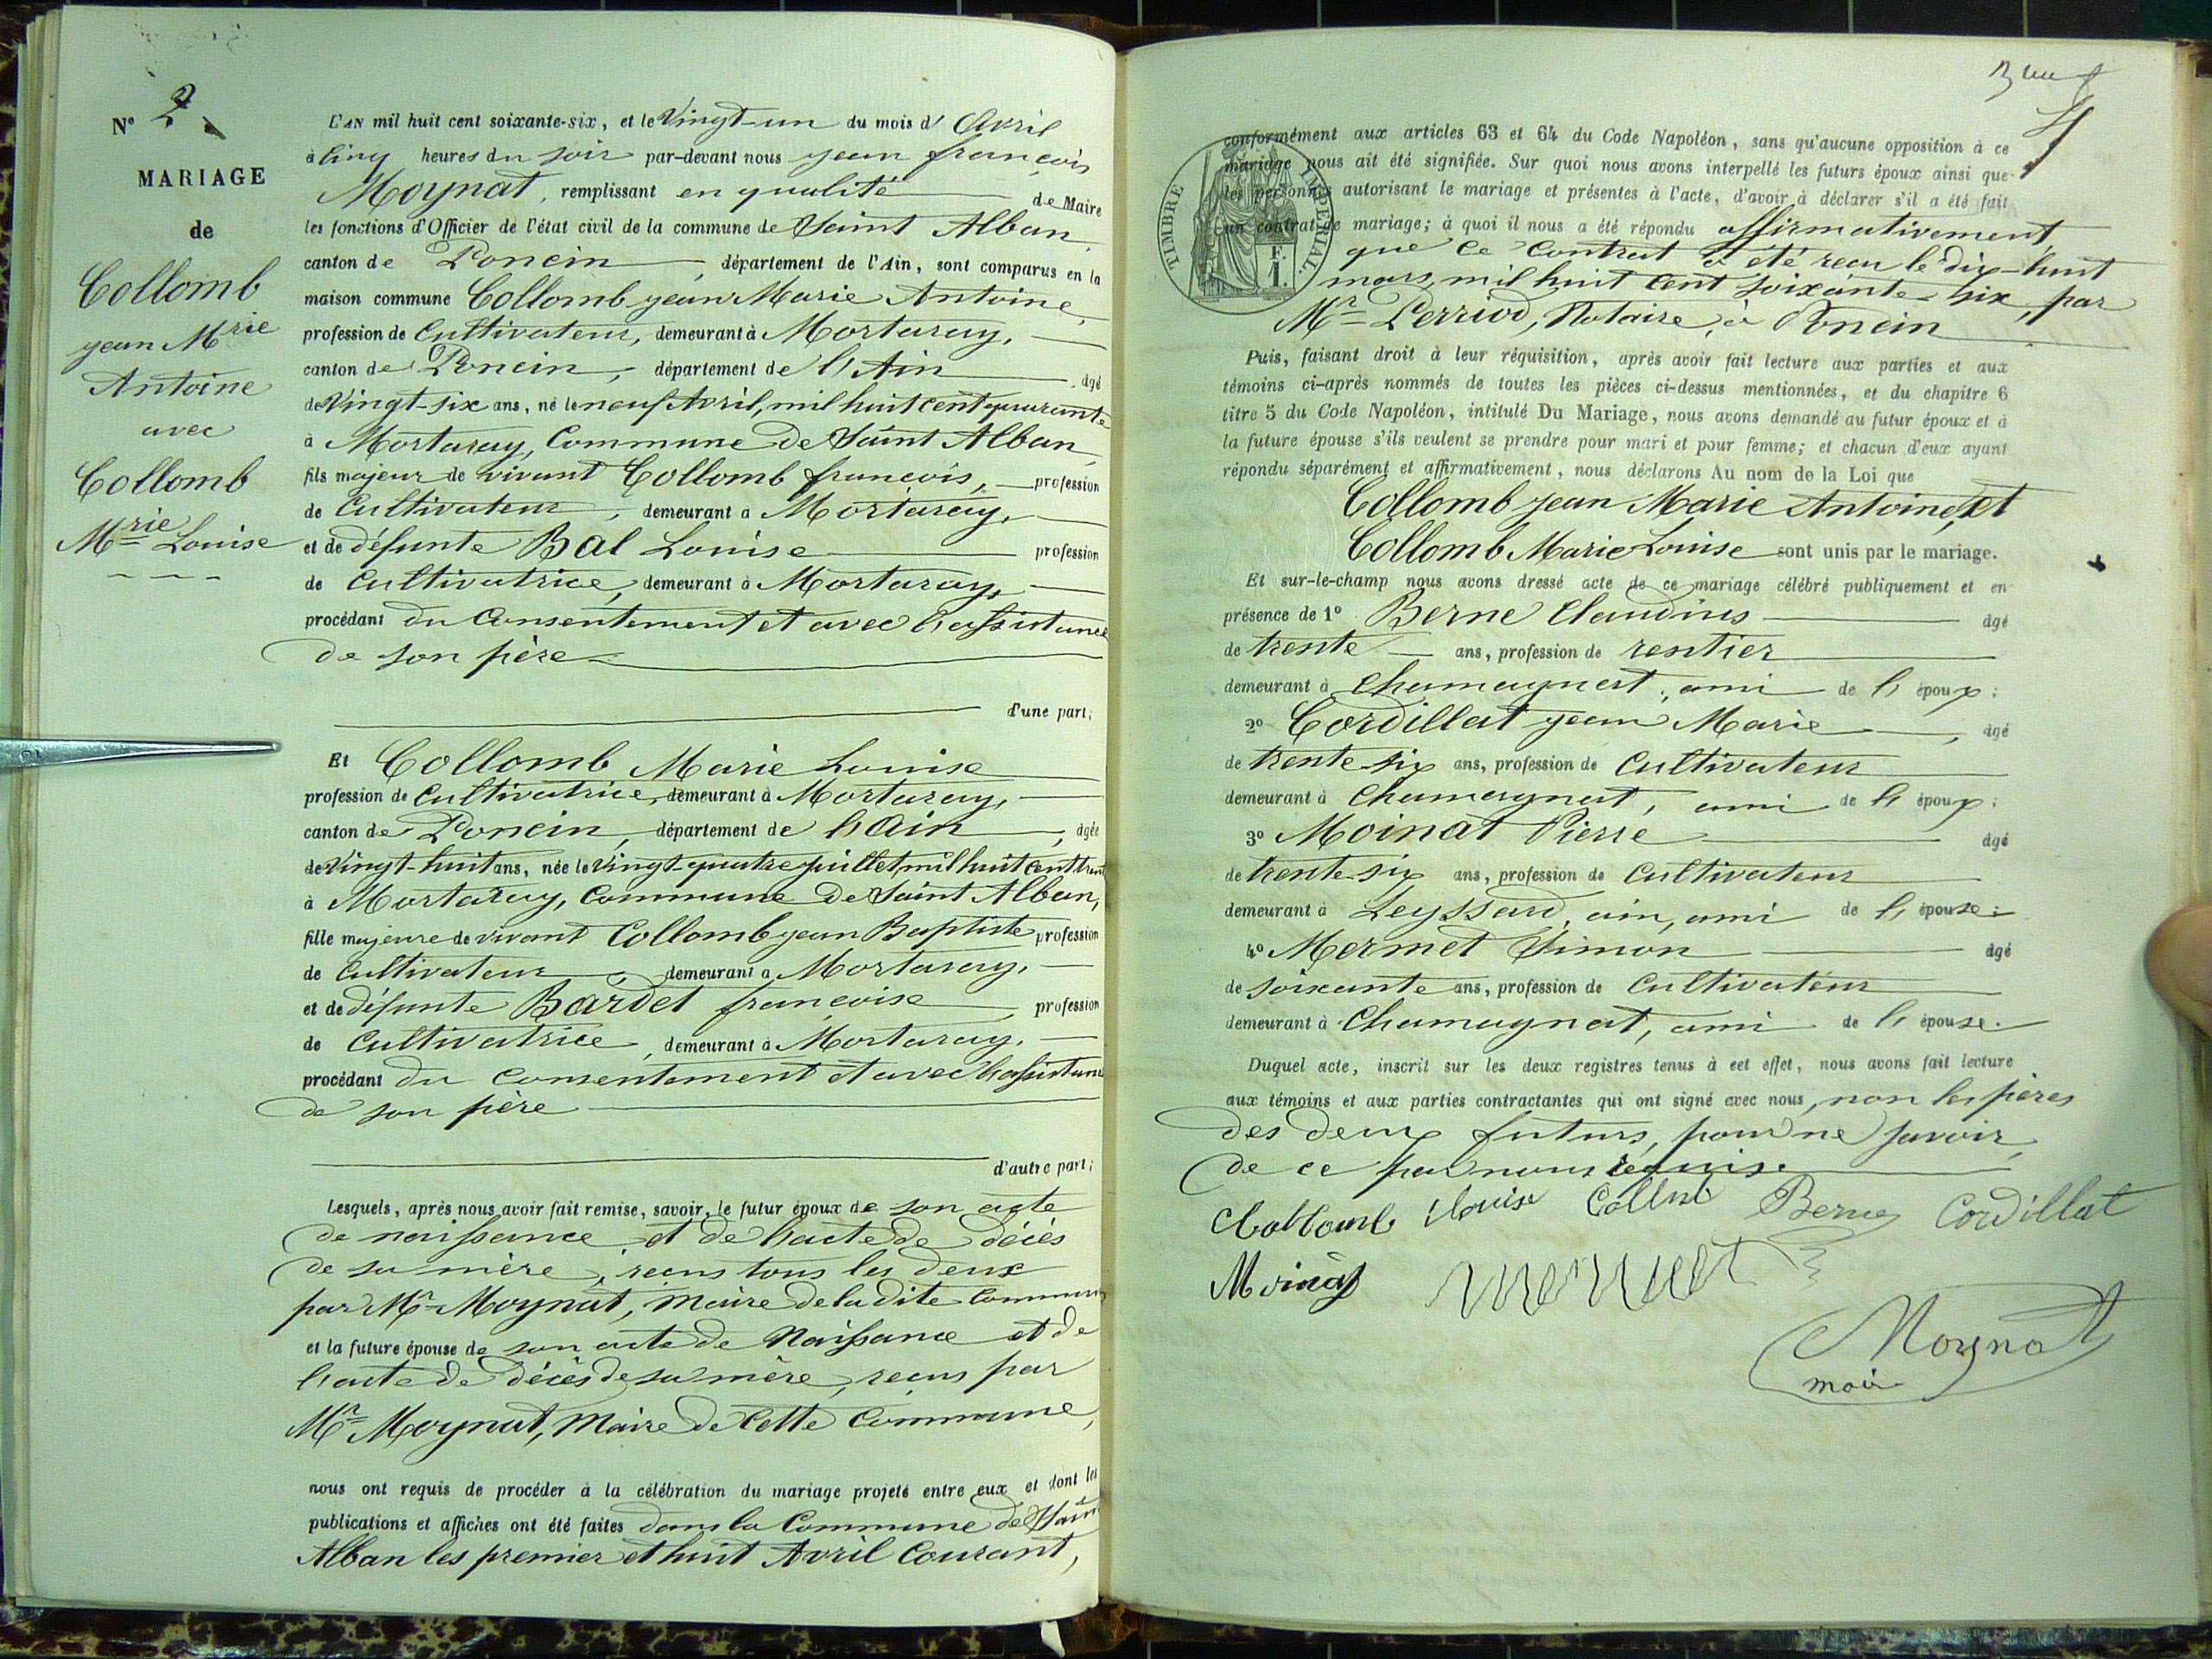 N° 2
MARIAGE
de
Collomb
jean Mrie
Antoine
avec
Collomb
Mrie Louise
L'AN mil huit cent soixante-six, et le Vingt-un du mois d' Avril
à Cinq heures du soir par-devant nous jean françois
Moynat, remplissant en qualité de Maire
les fonctions d'Officier de l'état civil de la commune de Saint Alban,
canton de Poncin, département de l'Ain, sont comparus en la
maison commune Collomb jean Marie Antoine,
profession de Cultivateur, demeurant à Mortaray,
canton de Poncin, département de l'Ain âgé
de Vingt-six ans, né le neuf Avril, mil huit cent quarante
à Mortaray, Commune de Saint Alban,
fils majeur de vivant Collomb francois, profession
de Cultivateur, demeurant à Mortaray,
et de défunte Bal Louise profession
de Cultivatrice, demeurant à Mortaray,
procédant du Consentement et avec l'assistance
de son père
d'une part;
Et Collomb Marie Louise
profession de Cultivatrice, demeurant à Mortaray,
canton de Poncin, département de l'Ain, âgée
de Vingt-huit ans, née le Vingt-quatre juillet, mil huit cent
à Mortaray, Commune de Saint Alban,
fille majeure de vivant Collomb jean Baptiste profession
de Cultivateur, demeurant à Mortaray,
et de défunte Bardet francoise profession
de Cultivatrice, demeurant à Mortaray,
procédant du Consentement et avec l'assistance
de son père
d'autre part;
Lesquels, après nous avoir fait remise, savoir, le futur époux de son acte
de naissance et de l'acte de décès
de sa mère, reçus tous les deux
par Mr Moynat, Maire de la dite Commune
et la future épouse de son acte de Naissance et de
l'acte de décès de sa mère, reçus par
Mr Moynat, Maire de Cette Commune,
nous ont requis de procéder à la célébration du mariage projeté entre eux et dont les
publications et affiches ont été faites dans la Commune de Saint
Alban les premier et huit Avril Courant,
4
TIMBRE IMPERIAL.
1 F.
conformément aux articles 63 et 64 du Code Napoléon, sans qu'aucune opposition à ce
mariage nous ait été signifiée. Sur quoi nous avons interpellé les futurs époux ainsi que
les personnes autorisant le mariage et présentes à l'acte, d'avoir à déclarer s'il a été fait
un contrat de mariage; à quoi il nous a été répondu affirmativement,
que Ce Contrat a été reçu le dix-huit
mars, mil huit Cent soixante-six, par
Mr Perriod, Notaire, à Poncin
Puis, faisant droit à leur réquisition, après avoir fait lecture aux parties et aux
témoins ci-après nommés de toutes les pièces ci-dessus mentionnées, et du chapitre 6
titre 5 du Code Napoléon, intitulé Du Mariage, nous avons demandé au futur époux et à
la future épouse s'ils veulent se prendre pour mari et pour femme; et chacun d'eux ayant
répondu séparément et affirmativement, nous déclarons Au nom de la Loi que
Collomb jean Marie Antoine, et
Collomb Marie Louise sont unis par le mariage.
Et sur-le-champ nous avons dressé acte de ce mariage célébré publiquement et en
présence de 1° Berne Claudius âgé
de trente ans, profession de rentier
demeurant à Chamagnat, ami de l'époux;
2° Cordillat jean Marie, âgé
de trente six ans, profession de Cultivateur
demeurant à Chamagnat, ami de l'époux;
3° Moinat Pierre âgé
de trente-six ans, profession de Cultivateur
demeurant à Leyssard, ain, ami de l'épouse;
4° Mermet Simon âgé
de soixante ans, profession de Cultivateur
demeurant à Chamagnat, ami de l'épouse.
Duquel acte, inscrit sur les deux registres tenus à cet effet, nous avons fait lecture
aux témoins et aux parties contractantes qui ont signé avec nous, non les pères
des deux futurs, pour ne savoir,
de ce par nous requis.
Collomb Louise Collomb Berne Cordillat
Moinat mermet
Moynat
maire